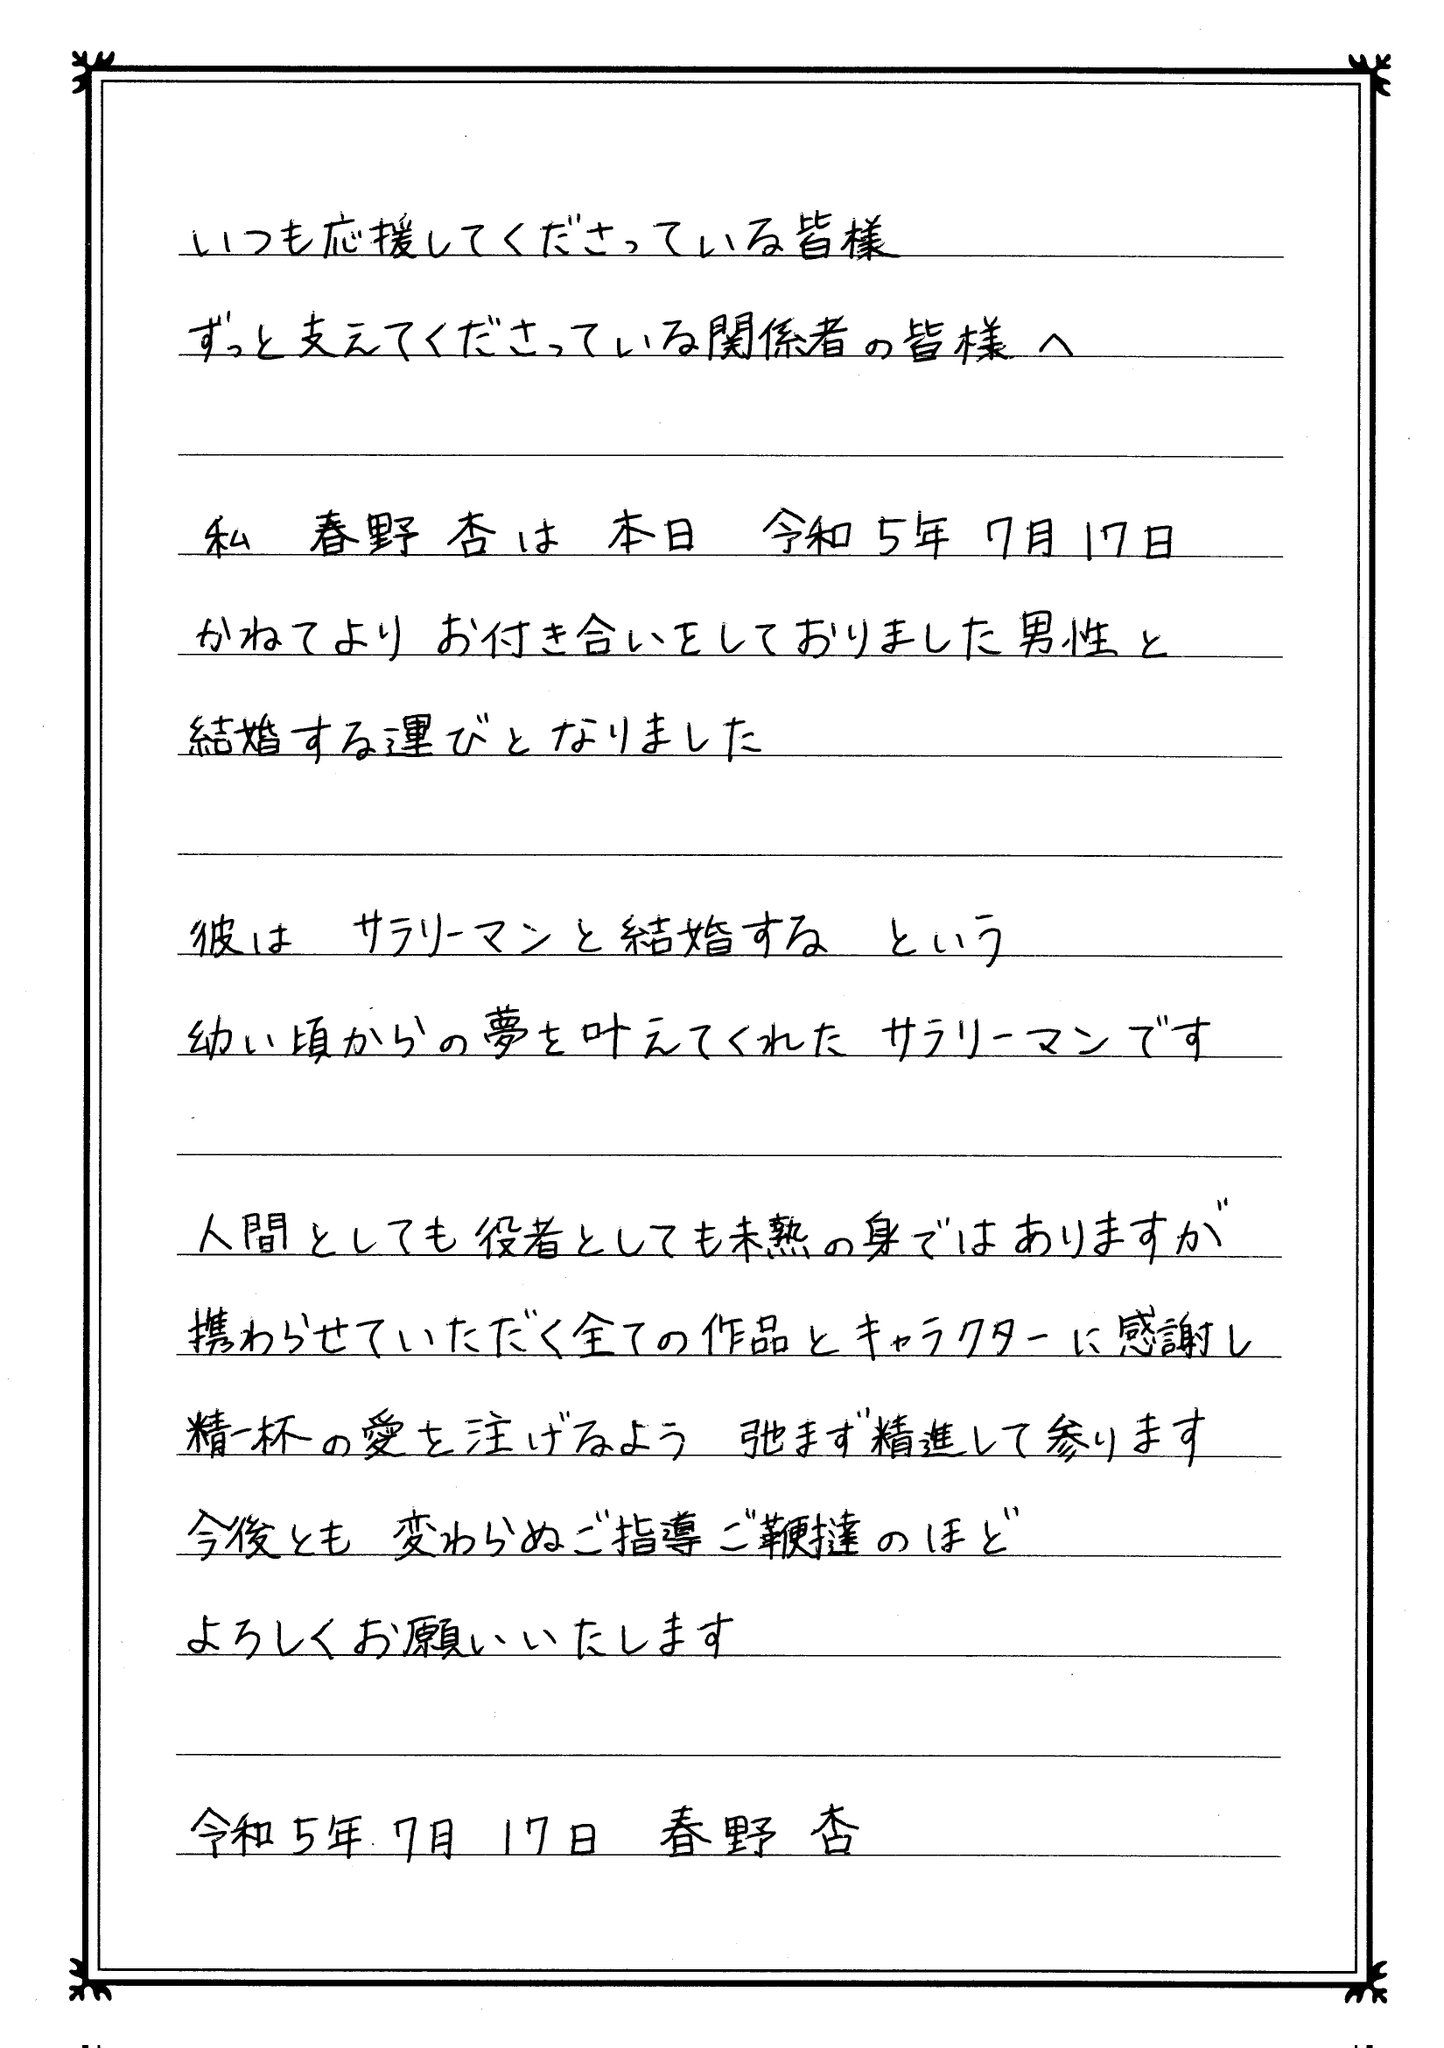 いつも応援してくださっている皆様
ずっと支えてくださっている関係者の皆様へ
私 春野 杏は 本日 令和5年 7月17日
かねてより お付き合いをしておりました男性と
結婚する運びとなりました
彼は サラリーマンと結婚する という
幼い頃からの夢を叶えてくれた サラリーマンです
人間としても役者としても未熟の身ではありますが
携わらせていただく全ての作品とキャラクターに感謝し
精一杯の愛を注げるよう 弛まず精進して参ります
今後とも 変わらぬご指導ご鞭撻のほど
よろしくお願いいたします
令和5年 7月 17日 春野 杏